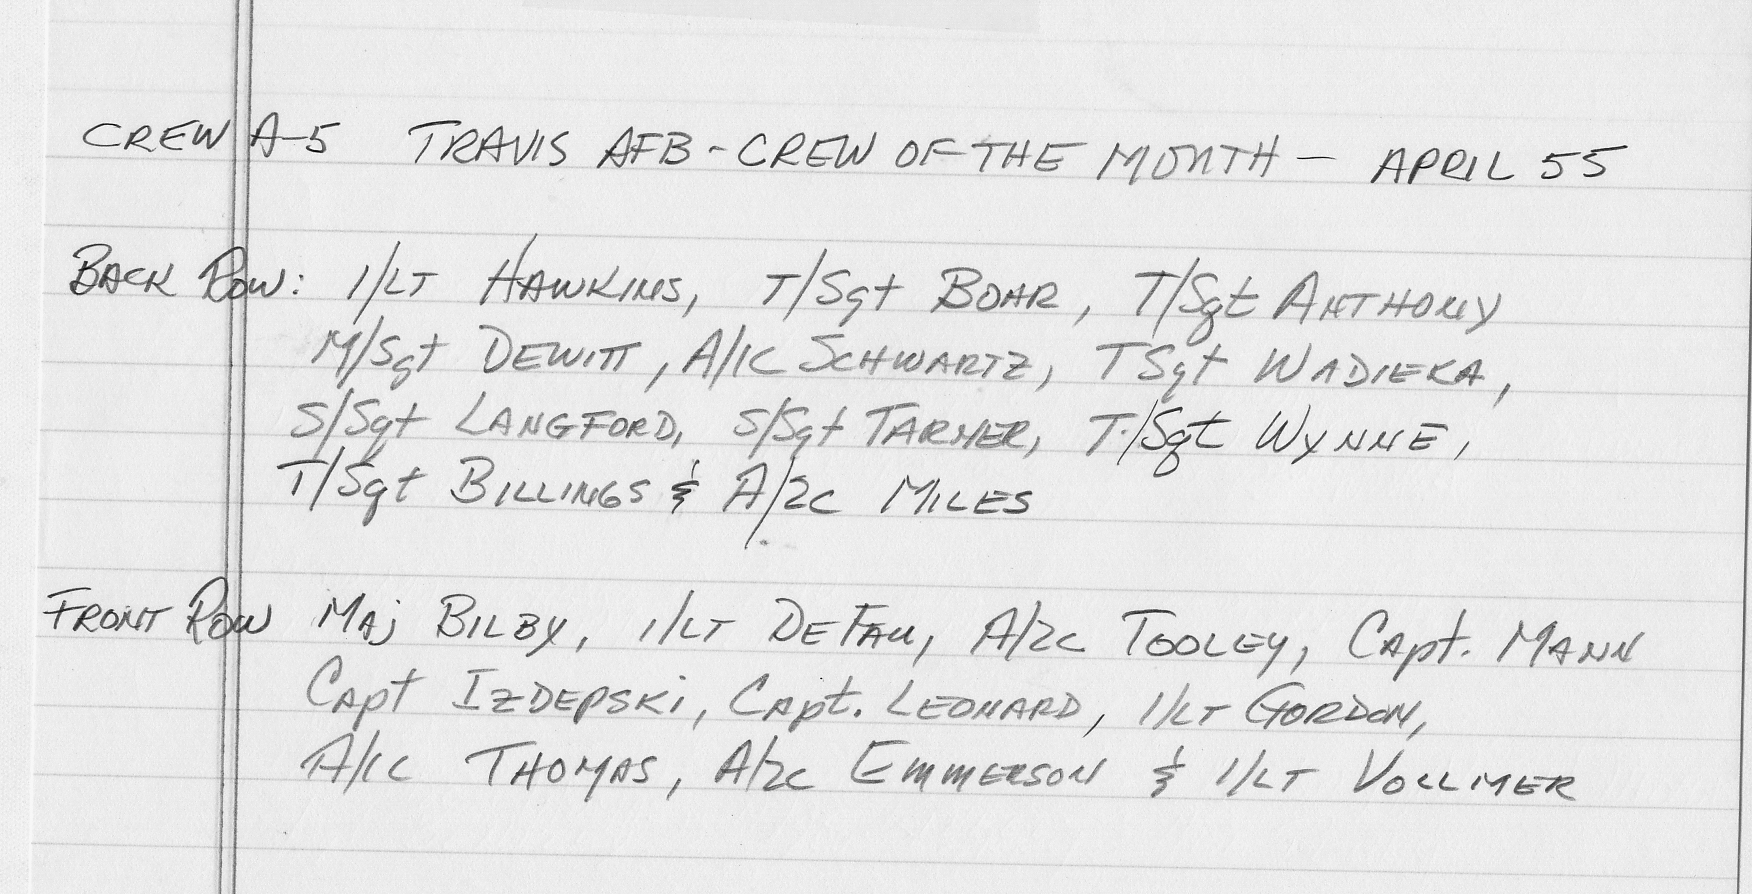 CREW A-5 TRAVIS AFB - CREW OF THE MONTH - APRIL 55
BACK ROW: 1/LT HAWKINS, T/Sgt BOAR, T/Sgt ANTHONY
M/Sgt DEWITT, A/1C SCHWARTZ, TSgt WADIEKA,
S/Sgt LANGFORD, S/Sgt TARMER, T/Sgt WYNNE,
T/Sgt BILLINGS & A/2C MILES
FRONT ROW MAJ BILBY, 1/LT A/2C TOOLEY, Capt. MANN
Capt IZDEPSKI, Capt. LEONARD, 1/LT GORDON,
A/1C THOMAS, A/2C EMMERSON & 1/LT VOLLMER